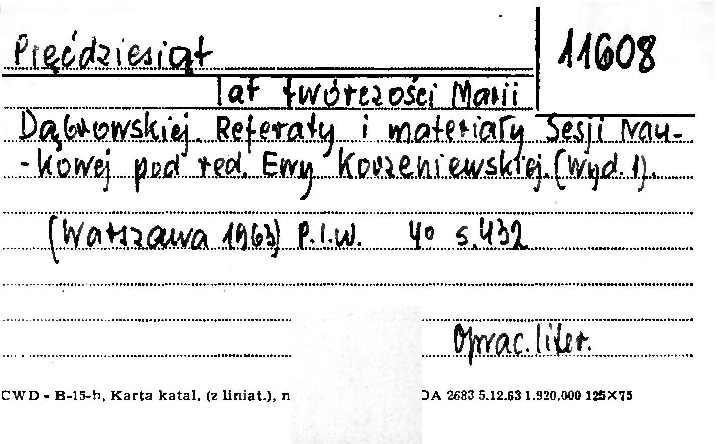 Pięćdziesiąt
11608
lat twórczości Marii
Dąbrowskiej. Referaty i materiały Sesji Nau-
-kowej pod red. Ewy Korzeniewskiej. (Wyd. 1).
(Warszawa 1963) P.I.W. 4° s. 432
Oprac. liter.
CWD - B-15-b, Karta katal. (z liniat.), n DA 2683 5.12.63 1.920.000 125×75